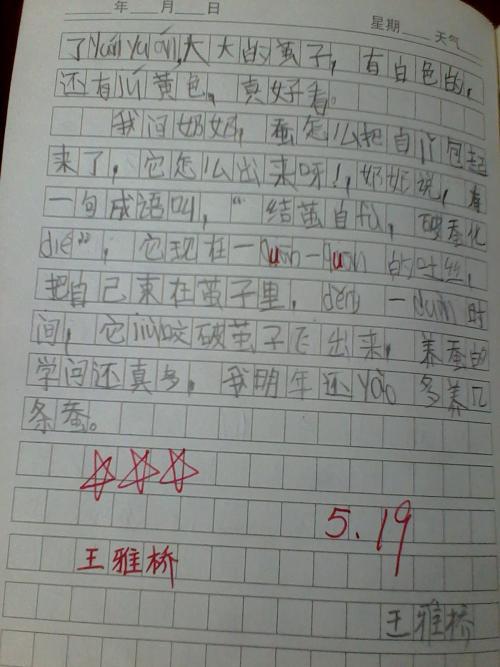 年 月 日
星期 天气
了yuán yuán,大大的茧子，有白色的，
还有lǜ黄色，真好看。
我问奶奶，蚕怎么把自门包起
来了，它怎么出来呀！，奶奶说，有
一句成语叫，“结茧自fù，破蚕化
dié”，它现在一quān一quān的吐丝，
把自己束在茧子里，děng一duàn时
间，它jiù咬破茧子飞出来，养蚕的
学问还真多，我明年还yào多养几
条蚕。
5.19
王雅桥
王雅桥